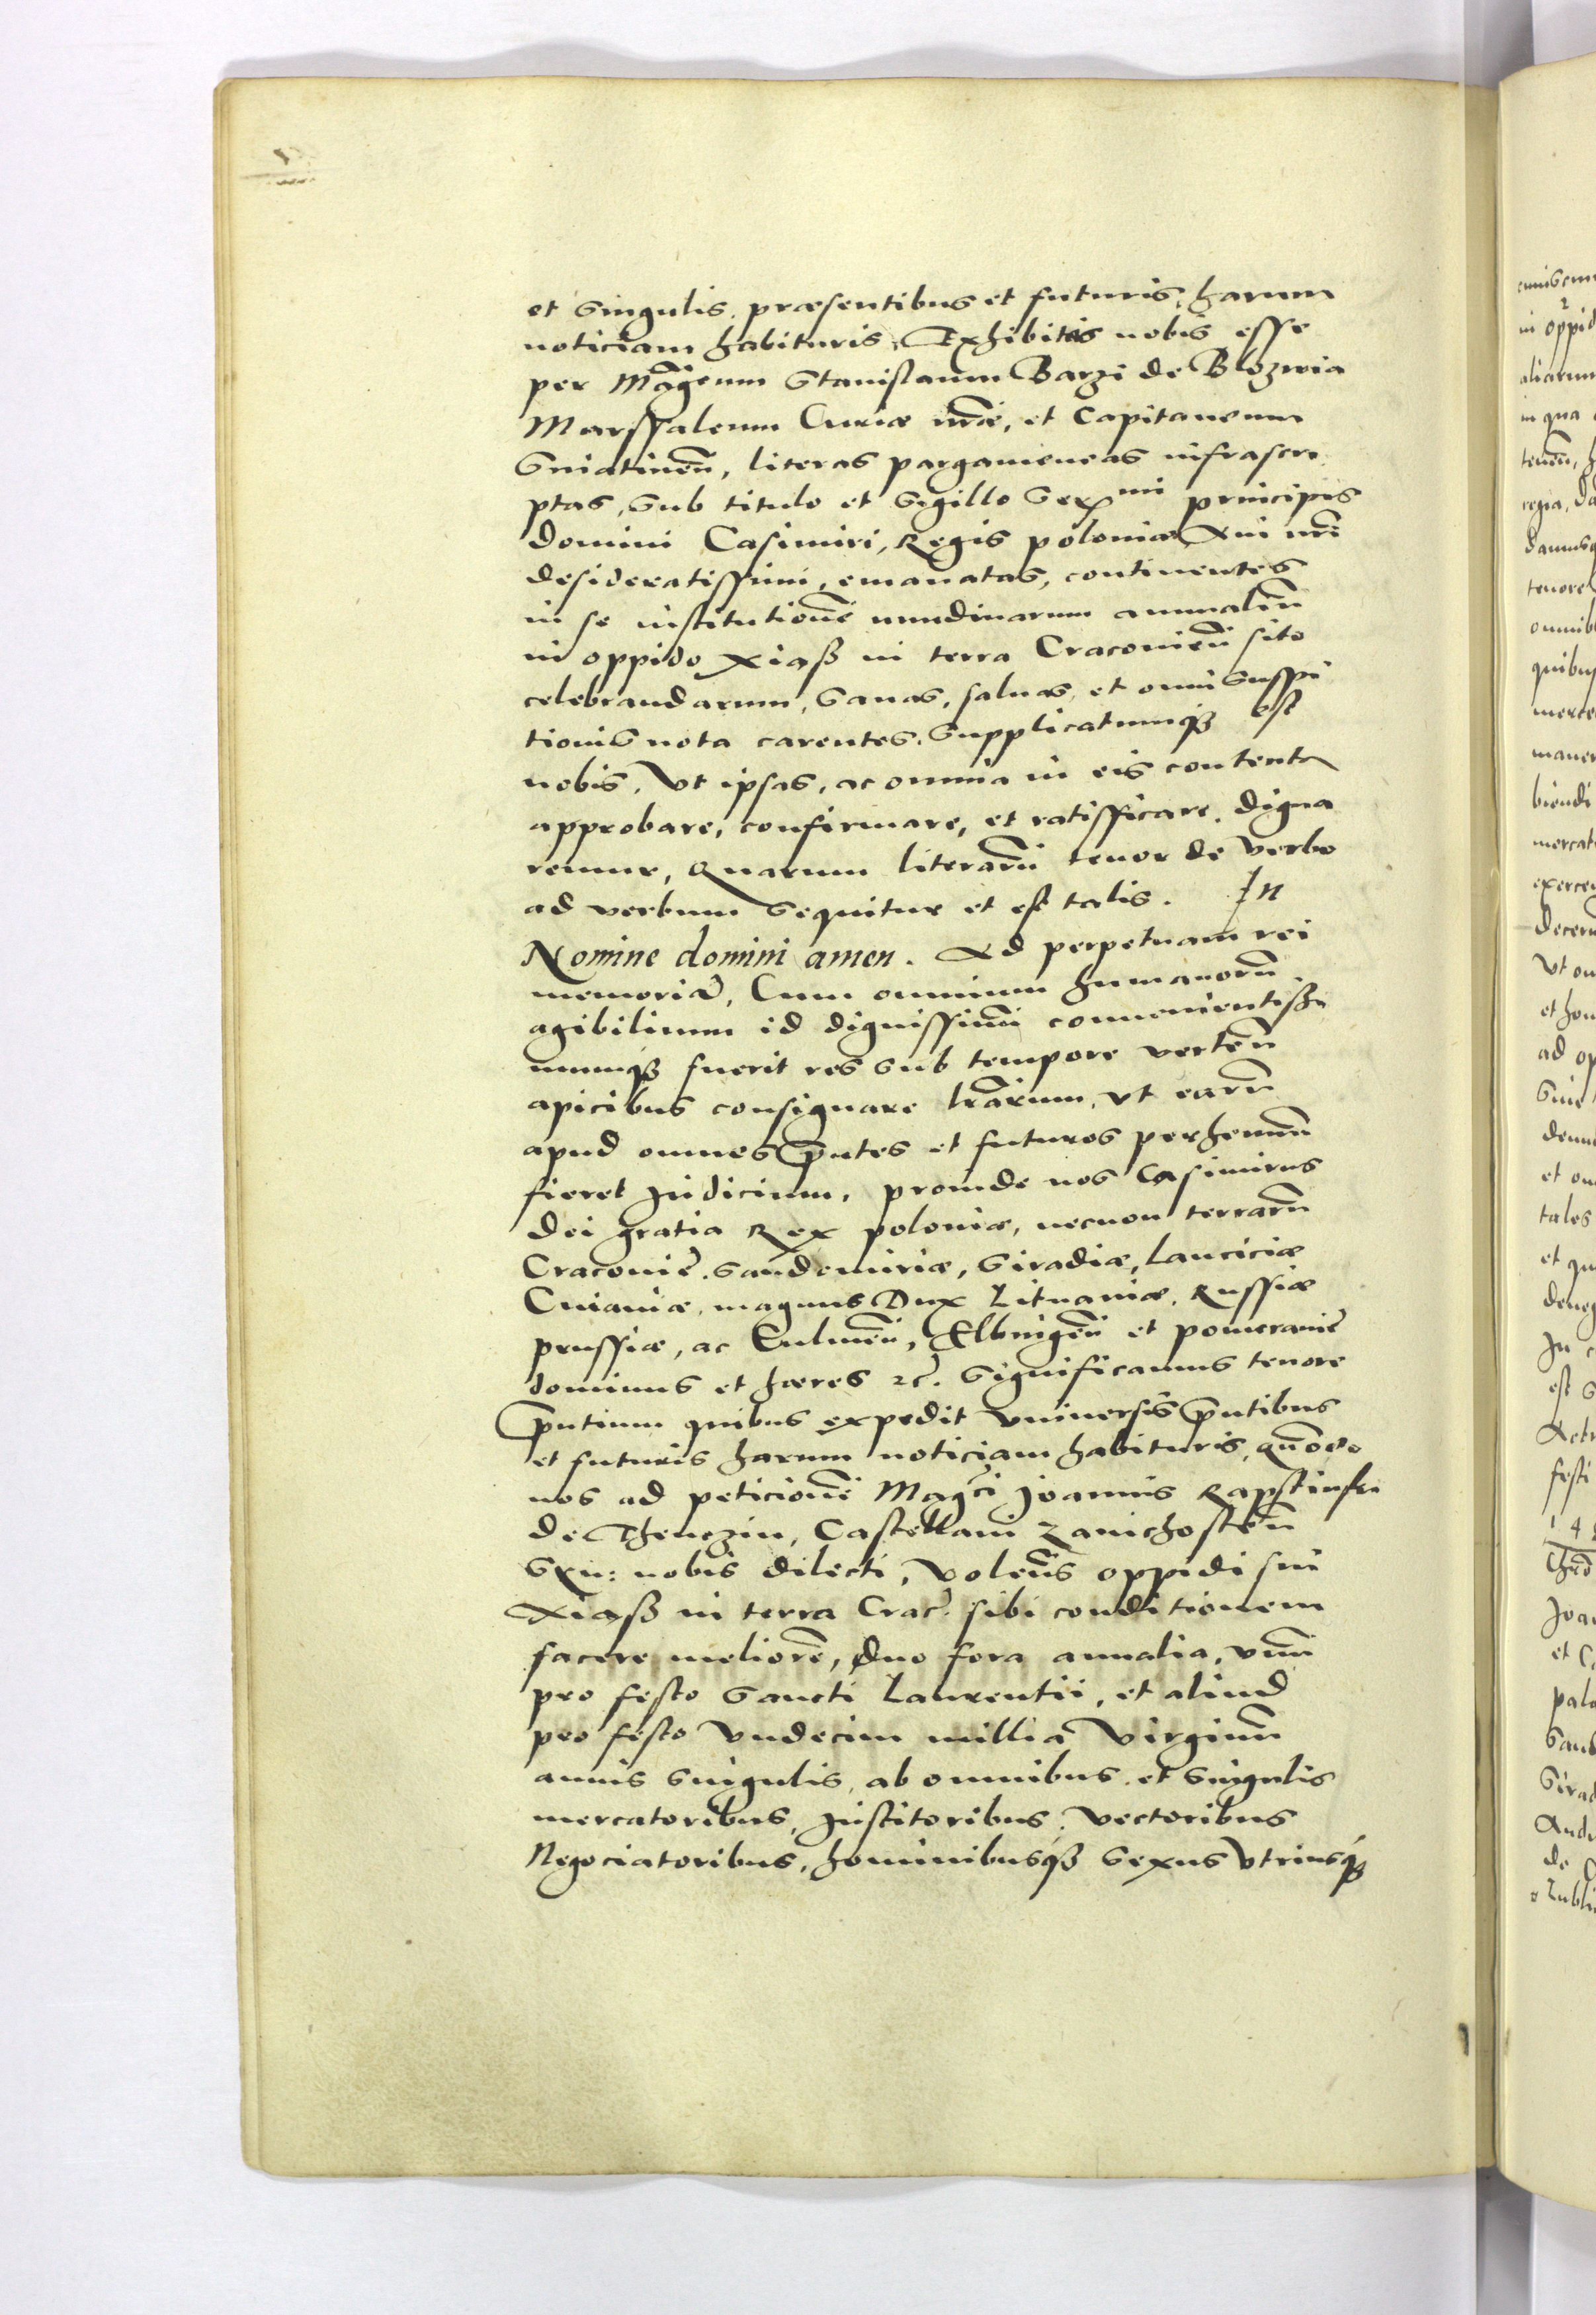 et singulis, præsentibus et futuris, harum
noticiam habituris, Exhibitas nobis esse
per Mãgcum Stanislaum Barzi de Blozwia
Marssalcum Curiæ nr̃æ, et Capitaneum
Sniatineñ, literas pargameneas infrascri
ptas, sub titulo et sigillo Ser^mi principis
domini Casimiri, Regis poloniæ, Aui nr̃i
desideratissimi, emanatas, continentes
in se institutionẽ nundinarum annualiũ
in oppido Xiasz in terra Cracouieñ sito
celebrandarum, sanas, saluas, et omni suspi
tionis nota carentes. Supplicatumq3 est
nobis, Vt ipsas, ac omnia in eis contenta
approbare, confirmare, et ratifficare, digna
remur, Quarum literarũ tenor de verbo
ad verbum sequitur et est talis. In
Nomine domini amen. Ad perpetuam rei
memoriã, Cum omnium humanorũ
agibilium id dignissimũ conuenientissi
mumq3 fuerit res sub tempore verteñ
apicibus consignare lr̃arum, vt earũ
apud omnes p̃ntes et futuros perhennũ
fieret Judicium, proinde nos Casimirus
dei gratia Rex poloniæ, necnon terrarũ
Cracouiẽ, Sandomiriæ, Siradiæ, Lanciciæ
Cuiauiæ, magnus Dux Lituaniæ, Russiæ
prussiæ, ac Culmeñ, Elbingeñ et pomeraniẽ
dominus et hæres etc̃. Significamus tenore
p̃ntium quibus expedit vniuersis p̃ntibus
et futuris harum noticiam habituris, quõdo
nos ad peticionẽ Magc̃i Joannis Rapstinski
de Thenczin, Castellani Zauichosteñ
Syn: nobis dilecti, Volentis oppidi sui
Xiasz in terra Crac̃. sibi conditionem
facere meliorẽ, Duo fora annalia, vnũ
pro festo Sancti Laurentii, et aliud
pro festo Vndecim milliã Virginũ
annis singulis, ab omnibus et singulis
mercatoribus, Institoribus, Vectoribus
Negociatoribus, hominibusq3 sexus vtriusq3